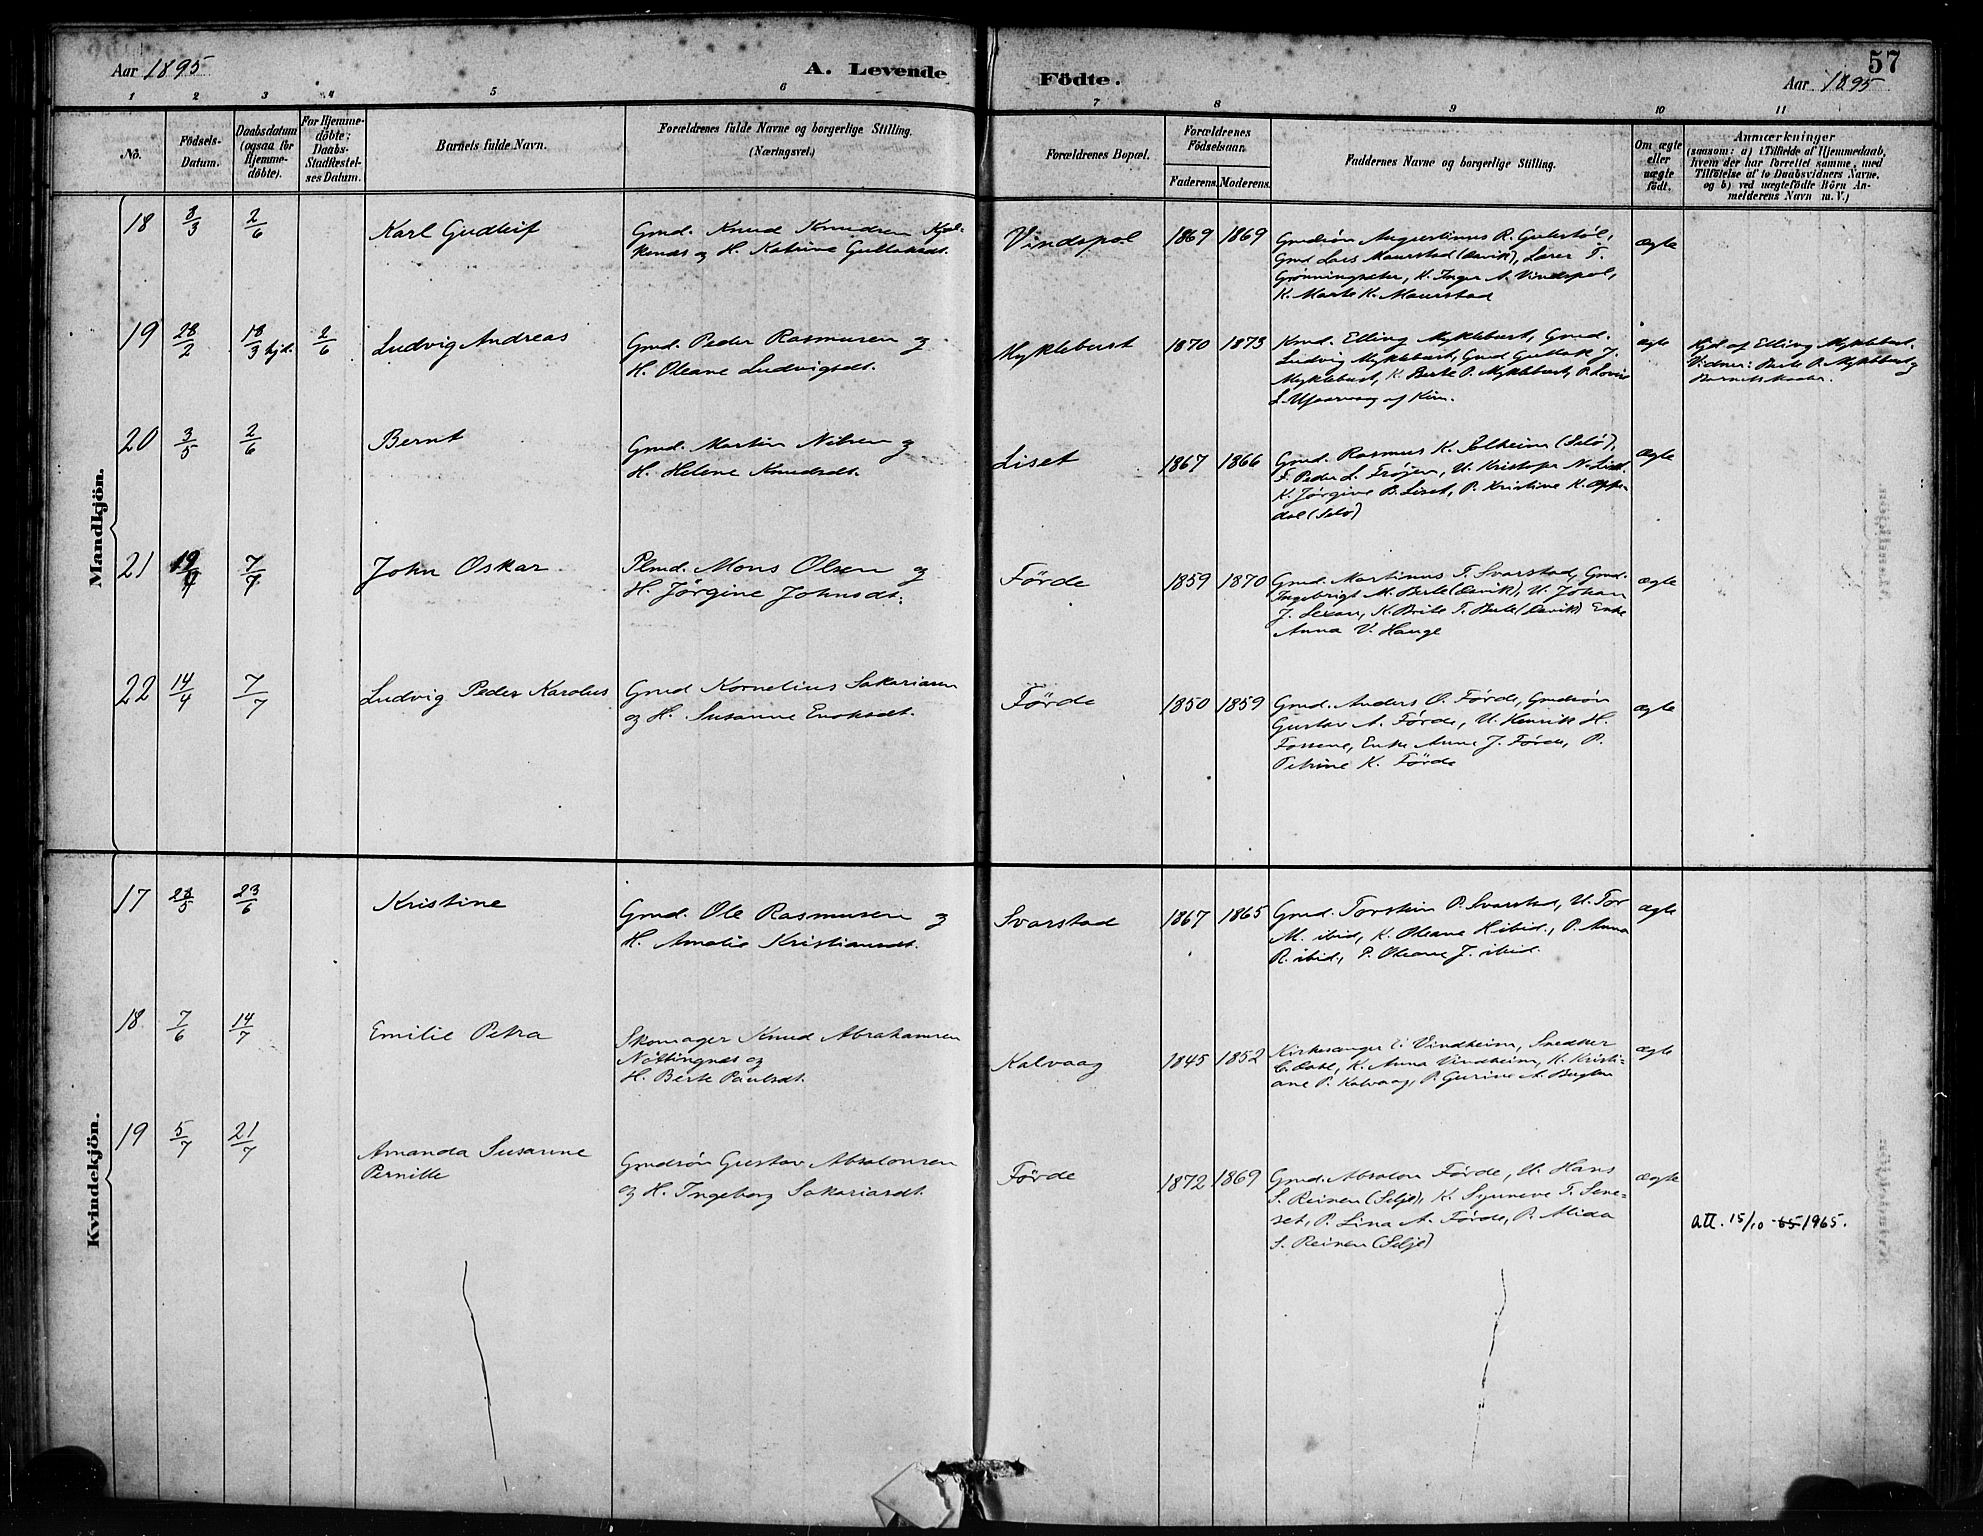 57
Aar 1895
A. Levende
Födte.
Aar 1895
1 2 3 4 5 6 7 8 9 10 11
No.
Födsels-
Datum.
Daabsdatum
(ogsaa for
Hjemme-
döbte).
For Hjemme-
döbte;
Daabs-
Stadfæstel-
ses Datum.
Barnets fulde Navn.
Forældrenes fulde Navne og borgerlige Stilling.
(Næringsvei.)
Forældrenes Bopæl.
Forældrenes
Födselsaar.
Faderens.
Moderens.
Faddernes Navne og borgerlige Stilling.
Om ægte
eller
uægte
födt.
Anmærkninger
(saasom: a) i Tilfælde af Hjemmedaab,
hvem der har forrettet samme, med
Tilföielse af to Daabsvidners Navne,
og b) ved uægtefödte Börn An-
melderens Navn m.V.)
Mandkjön.
18 8/3 2/6
Karl Gudleif
Gmd. Knud Knudsen
og H. Katrine Gullaksdt.
Vindspol
1869 1869
Gmdsön Augustinus R. Gulestöl,
Gmd Lars Maurstad (Davik), Lærer T.
Grönningsæter, K. Inger A. Vindspol,
K. Marte K. Maurstad
ægte
19 28/2 18/3 hjd. 2/6
Ludvig Andreas
Gmd. Peder Rasmusen og
H. Oleane Ludvigsdt.
Myklebust
1870 1873
Kmd. Elling Myklebust, Gmd.
Ludvig Myklebust, Gmd Gullak J.
Myklebust, K. Berte P. Myklebust, P. Lovise
af Kinn.
ægte
Hjd. af Elling Myklebust.
Vidner: Berte P. Myklebust og
Barnets Fader.
20 3/5 2/6
Bernt
Gmd. Martin Nilsen og
H. Helene Knudsdt.
Liset
1867 1866
Gmd. Rasmus K. (Selö),
F. Peder L. Fröjen, U. Kristofer N. Liset
K. Jörgine B. Liset, P. Kristine K. Oppe-
dal (Selö)
ægte
21 19/4 7/7
John Oskar
Plmd. Mons Olsen og
H. Jörgine Johnsdt.
Förde
1859 1870
Gmd. Martinus T. Svarstad, Gmd.
Ingebrigt M. Berle (Davik), U. Johan
J. K. Brite T. Berle (Davik) Enke
Anna V. Hauge
ægte
22 14/4 7/7
Ludvig Peder Karolus
Gmd Kornelius Sakariasen
og H. Susanne Enoksdt.
Förde
1850 1859
Gmd. Anders O. Förde, Gmdsön
Gustav A. Förde, U. Henrik H.
Fossene, Enke Anne J. Förde, P.
Petrine K. Förde
ægte
Kvindekjön.
17 28/5 23/6
Kristine
Gmd. Ole Rasmusen og
H. Amalie Kristiansdt.
Svarstad
1867 1865
Gmd. Torstein P. Svarstad, U. Tor
M. ibid, K. Oleane H ibid., P. Anna
R. ibid., P. Oleane J. ibid.
ægte
18 7/6 14/7
Emilie Petra
Skomager Knud Abrahamsen
Nöttingnes og
H. Berte Paulsdt.
Kalvaag
1845 1852
Kirkesanger Vindheim, Snedker
K. Anna Vindheim, K. Kristi-
ane P. Kalvaag, P. Gurine A.
ægte
19 5/7 21/7
Amanda Susanne
Pernille
Gmdsön Gustav Absalonsen
og H. Ingeborg Sakariasdt.
Förde
1872 1869
Gmd. Absalon Förde, U. Hans
S. Reinen (Selje), K. Synneve T. Sene-
set, P. Lina A. Förde, P. Alida
S. Reinen (Selje)
ægte
att. 15/10 65 1965.